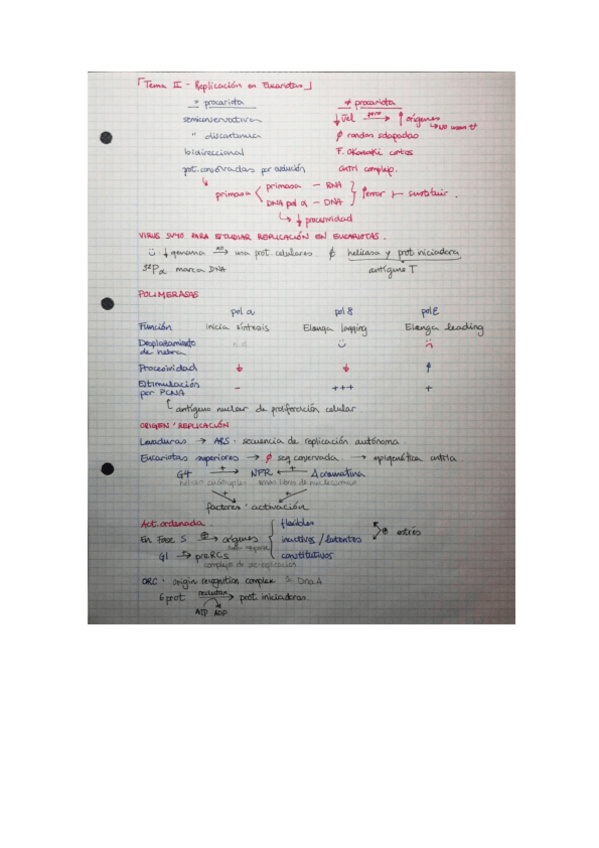 「Tema II - Replicación en Eucariotas」
= procariota
≠ procariota
semiconservativa
↓ vel pero → ↑ orígenes
↳ NO usan tt
" discontinua
ϕ randas solapadas
bidireccional
F. Okazaki cortos
prot. conservadas por evolución
primasa
primasa — RNA
DNA pol α — DNA
↑error ⊢ sustituir.
↳ ↓ procesividad
VIRUS SV40 PARA ESTUDIAR REPLICACIÓN EN EUCARIOTAS.
↓ genoma → usa prot. celulares. ϕ helicasa y prot. iniciadora
³²Pα marca DNA
antígeno T
POLIMERASAS
pol α pol δ pol ε
Función Inicia síntesis Elonga lagging Elonga leading
Desplazamiento de hebra n.d.
Procesividad ↓ ↓ ↑
Estimulación por PCNA - +++ +
antígeno nuclear de proliferación celular
ORIGEN REPLICACIÓN
Levaduras → ARS: secuencia de replicación autónoma.
Eucariotas superiores → ϕ seq conservada → epigenética
G4 + → NFR ← + Δ cromatina
zonas libres de nucleosomas
factores activación
Act. ordenada.
En Fase S → orígenes
flexibles
inactivos / latentes
constitutivos
⊕ estrés
G1 → preRCs
complejo de pre-replicación
ORC: origin recognition complex ≃ DnaA
6 prot → prot iniciadoras.
ATP ADP